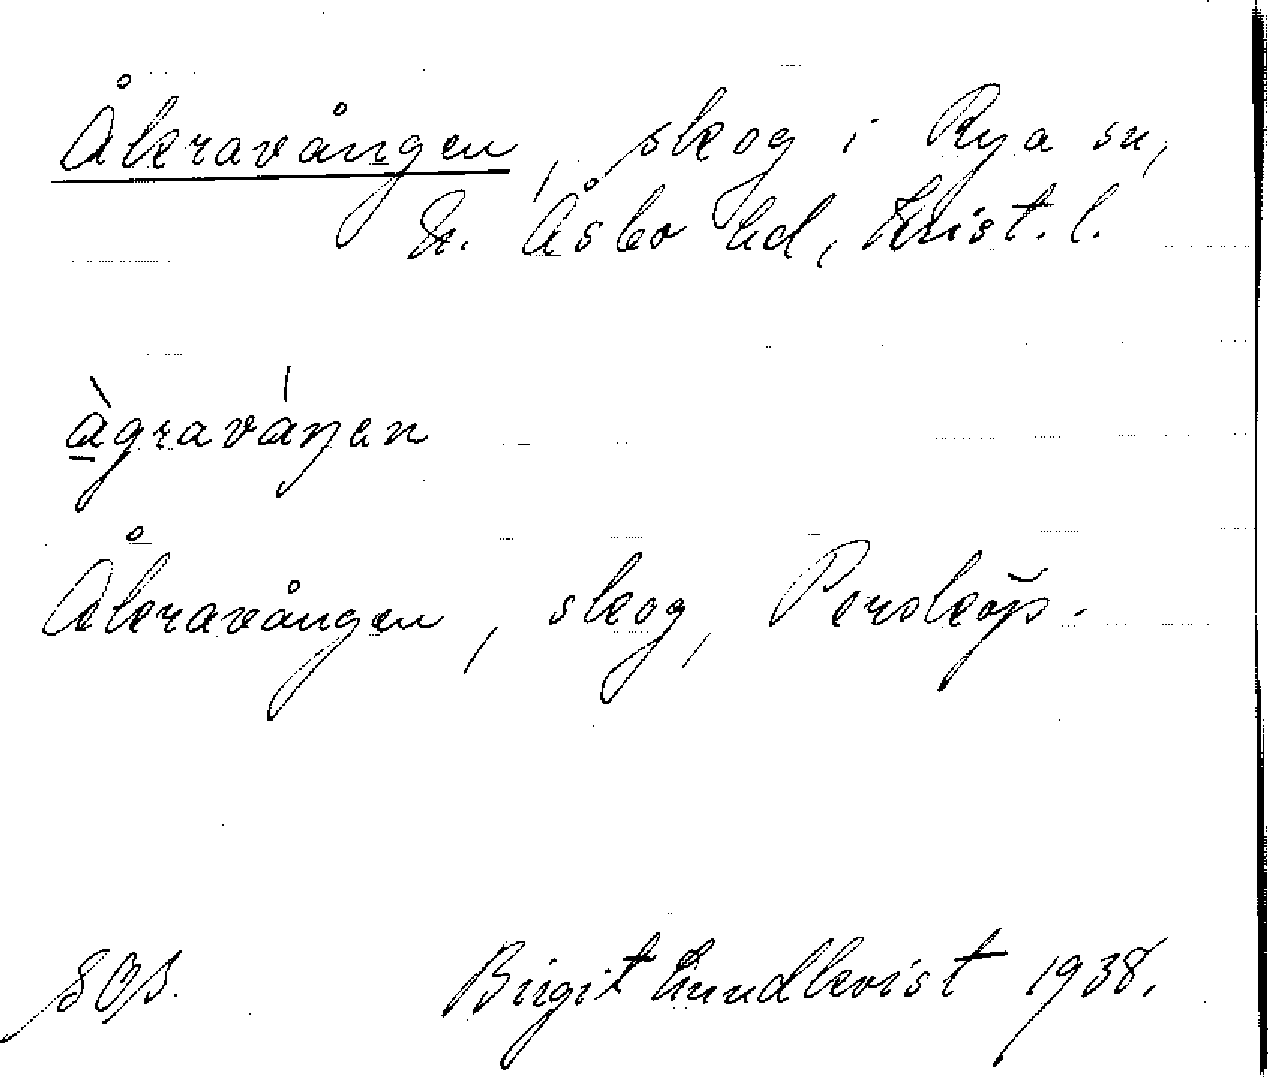 Åkravången, skog i Rya sn,
N. Åsbo hd, Krist. l.
àgraváŋen
Åkravången, skog, Perskǒp.
Birgit Lundkvist 1938.